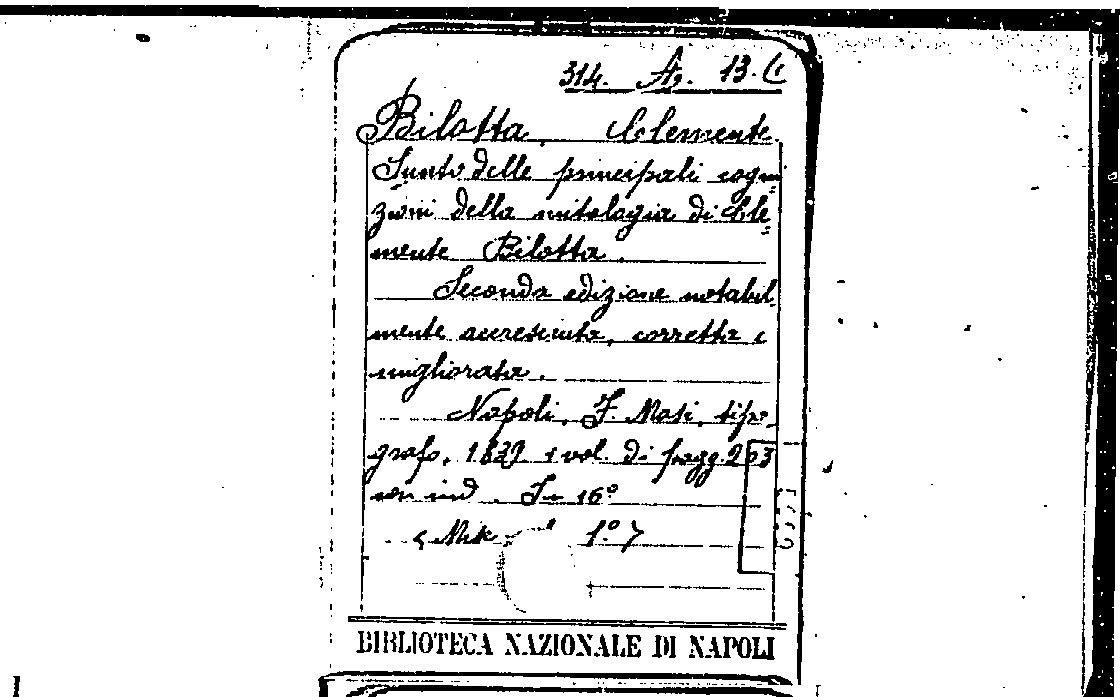 314. A. 13. (1
Bilotta, Clemente.
Sunto delle principali cogni
zioni della mitologia di Cle=
mente Bilotta.
Seconda edizione notabil
mente accresciuta, corretta e
migliorata.
Napoli, F. Masi, tipo=
grafo, 1839 1 vol. di pagg. 203
con ind. In 16°
1.° 7
BIBLIOTECA NAZIONALE DI NAPOLI